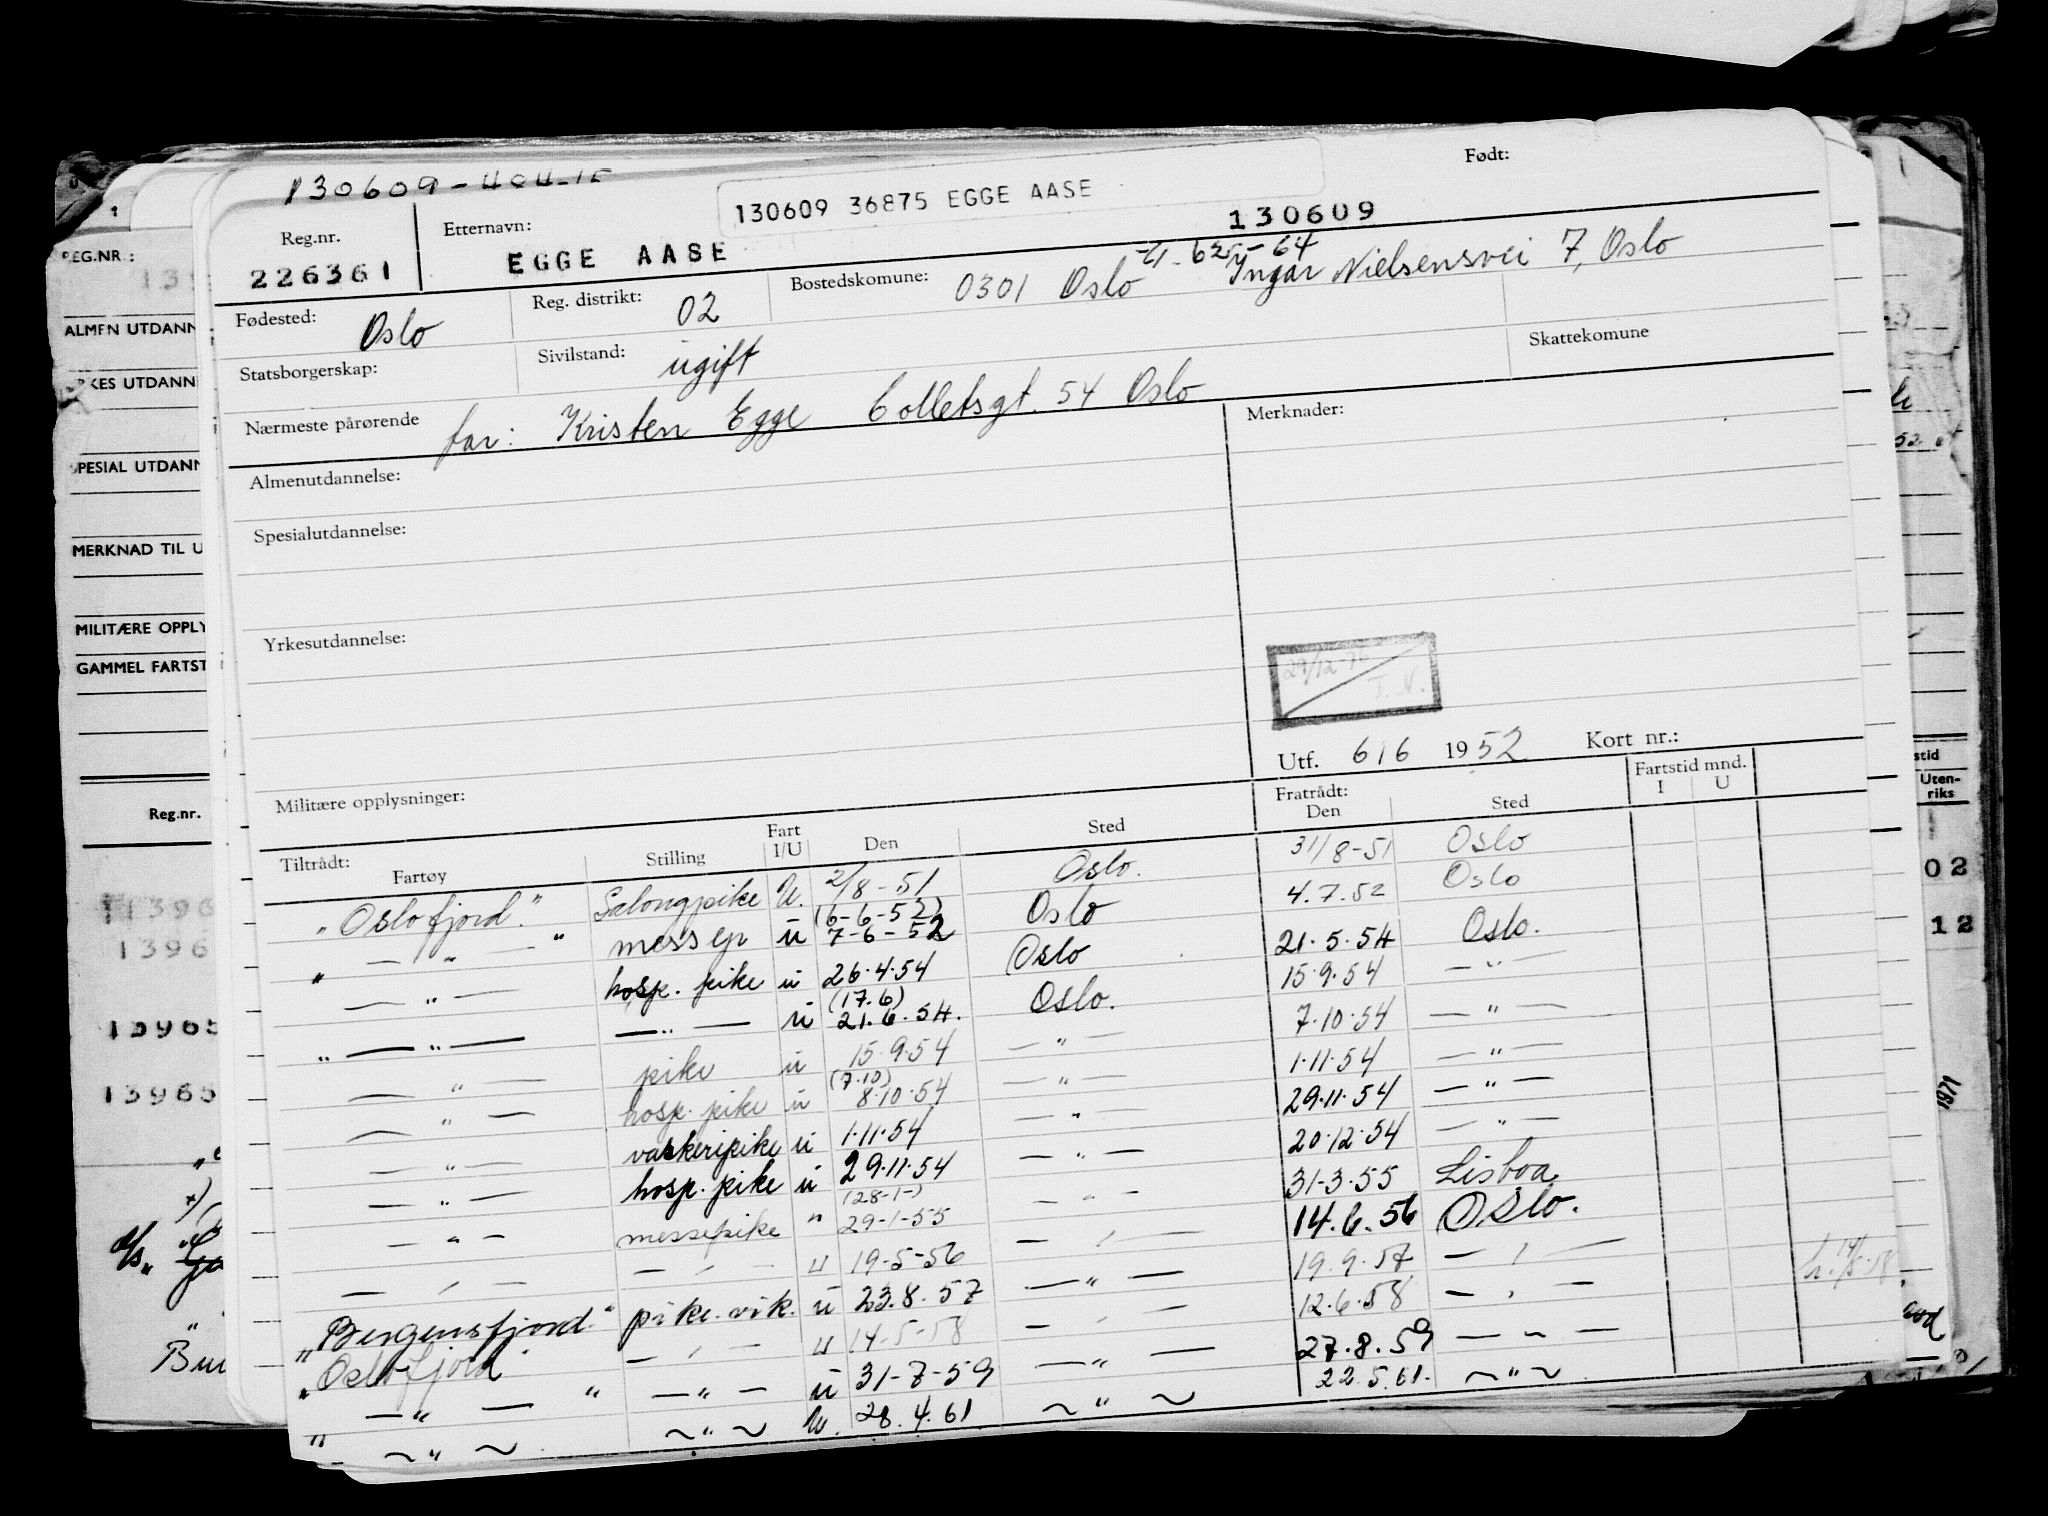 130609
130609 36875 EGGE AASE
Født:
130609
Reg.nr.
226361
Etternavn:
EGGE AASE
Fødested: Oslo
Reg. distrikt: 02
Bostedskomune: 0301 Oslo Ingar Nielsensvei 7, Oslo
Statsborgerskap:
Sivilstand: ugift
Skattekomune
Nærmeste pårørende far: Kristen Egge Colletsgt. 54 Oslo
Merknader:
Almenutdannelse:
Spesialutdannelse:
Yrkesutdannelse:
29/12-76
T. N.
Utf. 6/6 1952 Kort nr.:
Militære opplysninger:
Tiltrådt:
Fratrådt:
Fartstid mnd.
Fartøy Stilling Fart I/U Den Sted Den Sted I U
"Oslofjord" Salongpike U. 2/8-51 Oslo. 31/8-51 Oslo
" — " — " messep u (6-6-52) 7-6-52 Oslo 4.7.52 Oslo
— " — hosp. pike u 26.4.54 Oslo 21.5.54 Oslo.
" — " — — " — u (17.6) 21.6.54. Oslo. 15.9.54 — " —
— " — pike u 15.9.54 — " — 7.10.54 — " —
— " — hosp. pike u (7.10) 8.10.54 — " — 1.11.54 — " —
— " — vaskeripike u 1.11.54 — " — 29.11.54 — " —
— " — hosp. pike u 29.11.54 — " — 20.12.54 — " —
— " — messepike " (28-1-) 29-1-55 — " — 31-3-55 Lisboa
— " — — " — u 19-5-56 — " — 14.6.56 Oslo.
"Bergensfjord" pike.vik. u 23.8.57 — " — 19.9.57 — " —
"Oslofjord" — " — u 14-5-58 — " — 12.6.58 — " —
" — " — " — " — u 31-7-59 — " — 27.8.59 — " —
~ " ~ ~ " ~ U. 28.4.61 ~ " ~ 22.5.61. ~ " ~
REG.NR.:
ALMEN UTDANN
SPESIAL UTDANN
MERKNAD TIL U
MILITÆRE OPPLY
GAMMEL FARTST
Reg.nr.
1396
13965
13965
Uten-
riks
02
12
1971